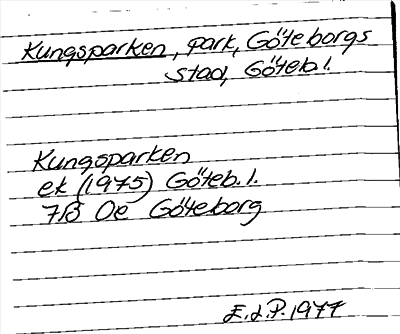 Kungsparken, park, Göteborgs
stad, Göteb. l.
Kungsparken
ek (1975) Göteb. l.
7B 0e Göteborg
E.J.P. 1977